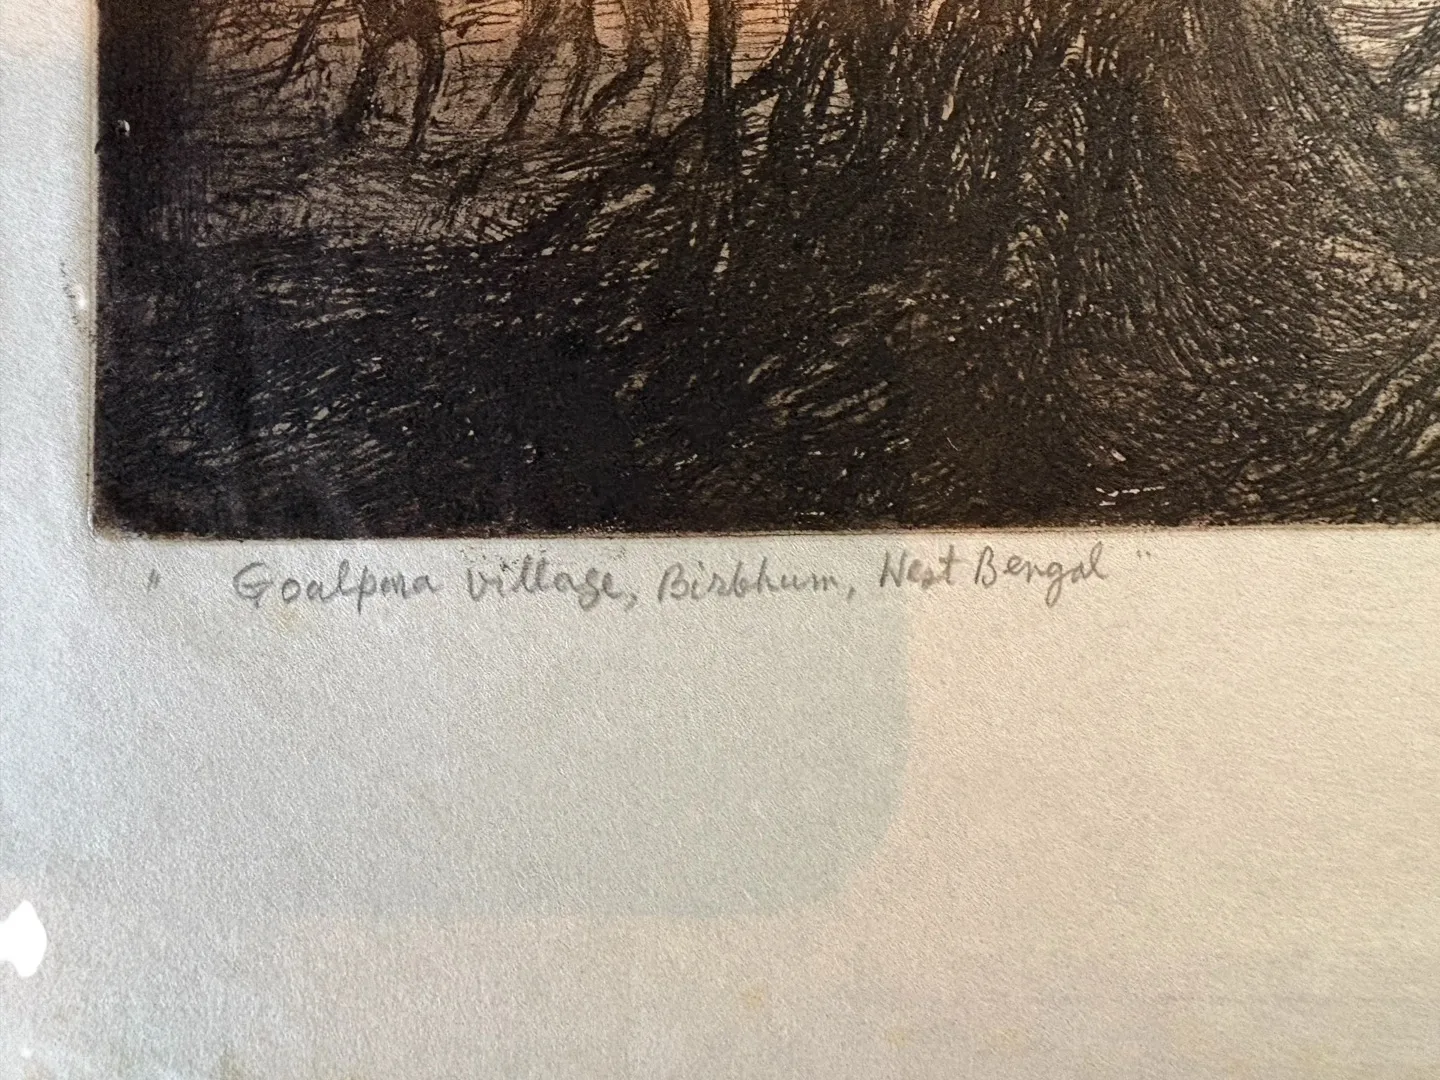 " Goalpara village, Birbhum, West Bengal "